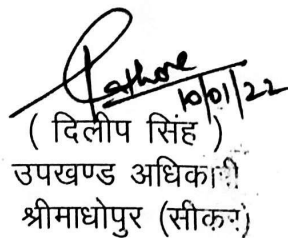 Rathore
10/01/22
( दिलीप सिंह )
उपखण्ड अधिकारी
श्रीमाधोपुर (सीकर)